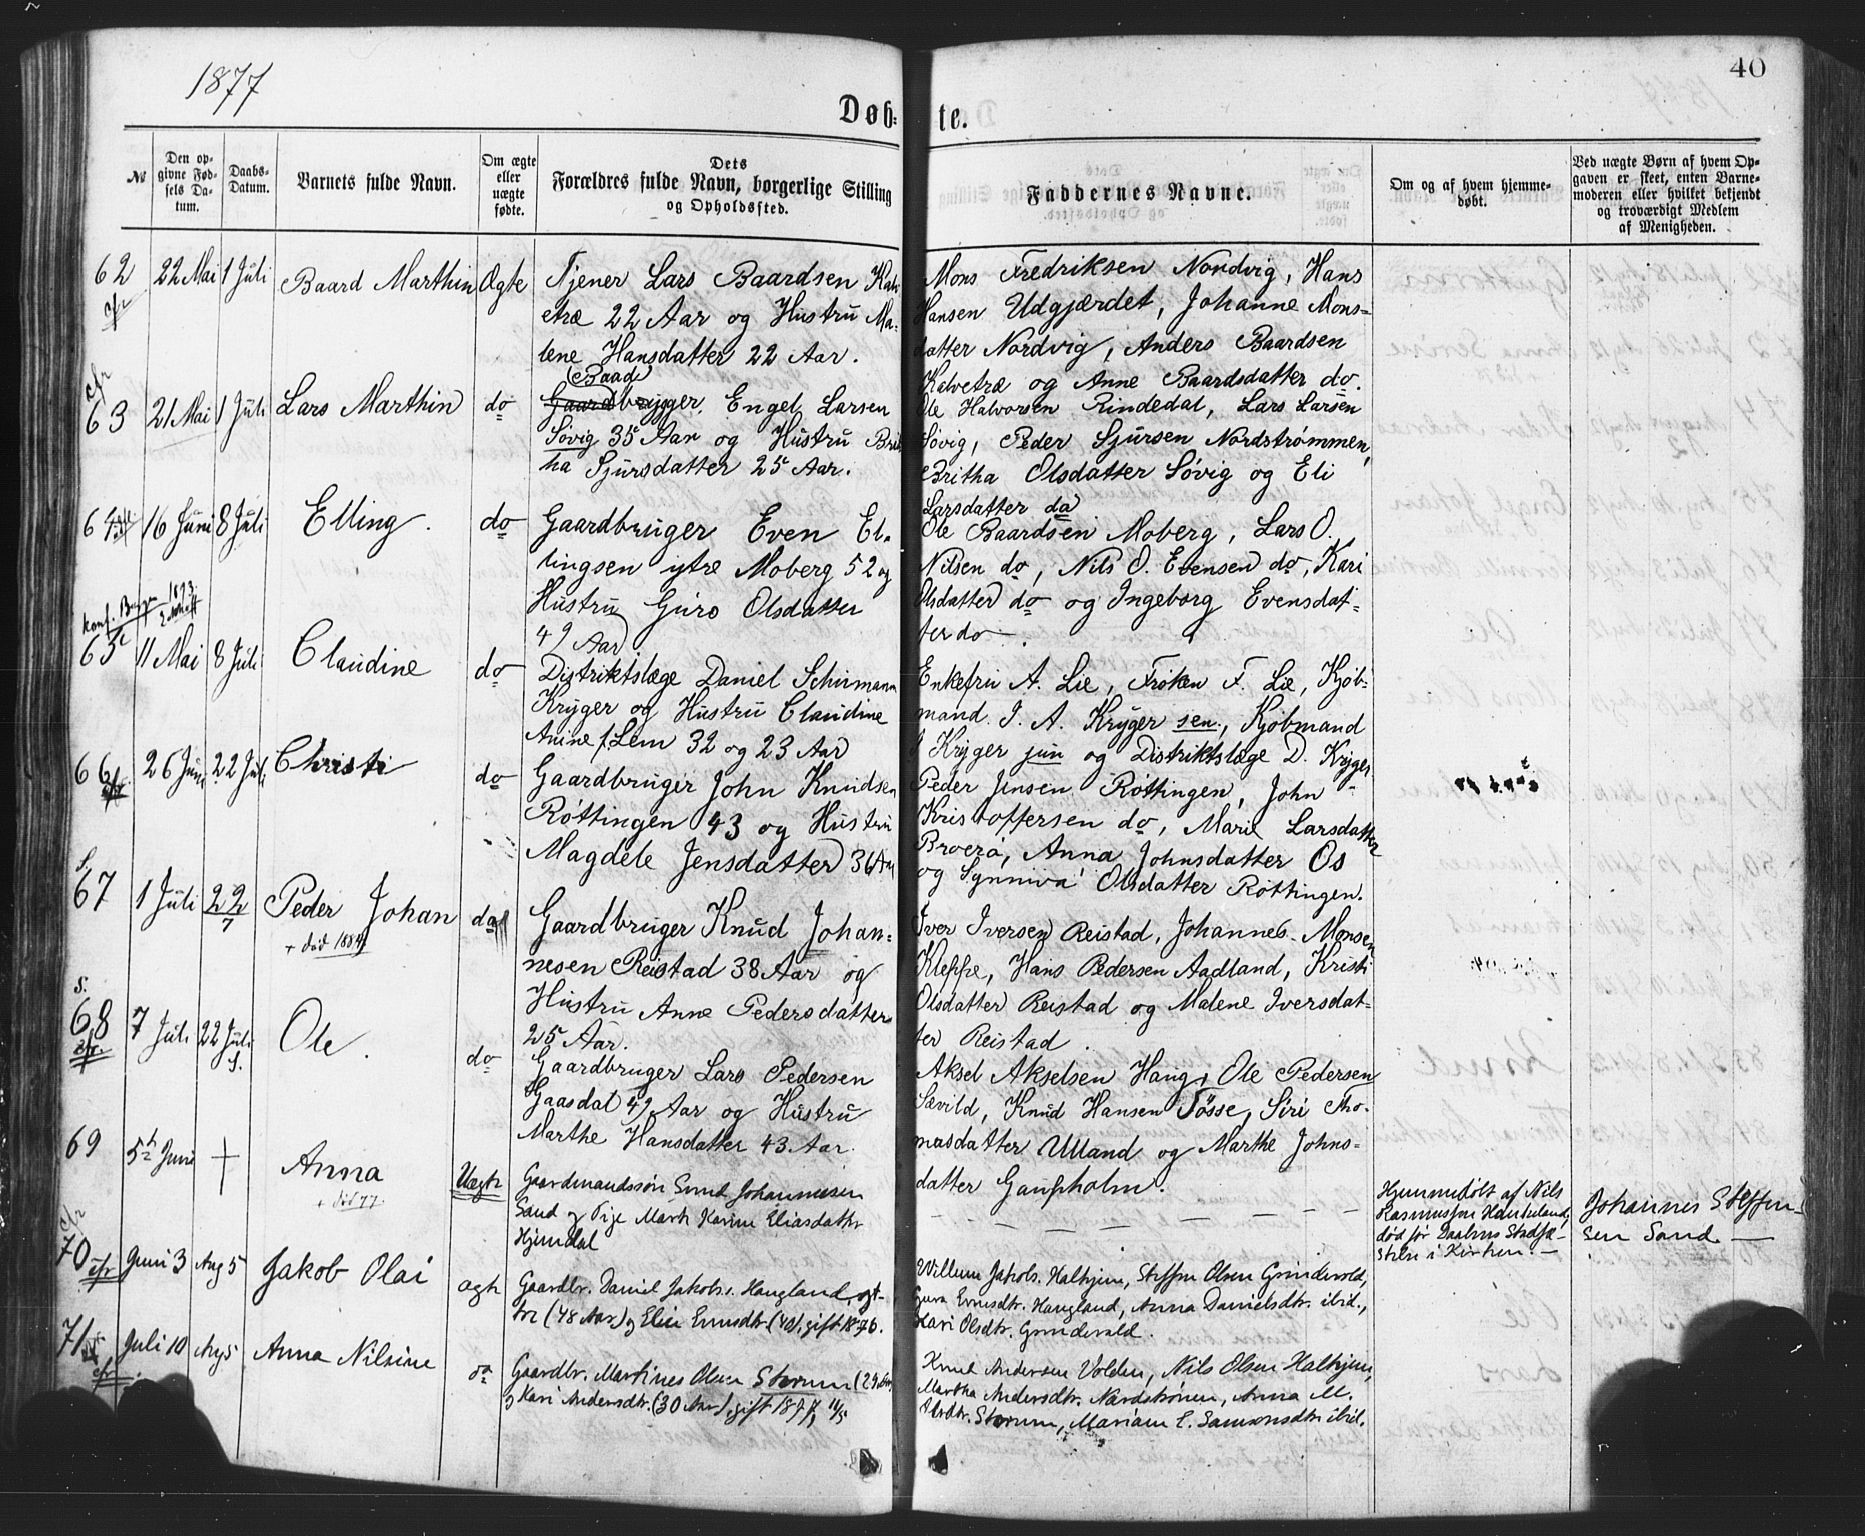 1877
40
Døb-
te.
№
Den op-
givne Fød-
sels Da-
tum.
Daabs-
Datum.
Barnets fulde Navn.
Om ægte
eller
uægte
fødte.
Dets
Forældres fulde Navn, borgerlige Stilling
og Opholdssted.
Faddernes Navne.
Om og af hvem hjemme-
døbt.
Ved uægte Børn af hvem Op-
gaven er skeet, enten Barne-
moderen eller hvilket bekjendt
og troværdigt Medlem
af Menigheden.
62 22 Mai 1 Juli Baard Marthin Ægte
Tjener Lars Baardsen Kalv
etræ 22 Aar og Hustru Ma-
lene Hansdatter 22 Aar.
Mons Fredriksen Nordvig, Hans
Hansen Udgjærdet, Johanne Mons-
datter Nordvig, Anders Baardsen
Kalvetræ og Anne Baardsdatter do.
63 21 Mai 1 Juli Lars Marthin do
(Baad)
Gaardbrygger, Engel Larsen
Søvig 35 Aar og Hustru Brit
ha Sjursdatter 25 Aar.
Ole Halvorsen Rindedal, Lars Larsen
Søvig, Peder Sjursen Nordstrømmen,
Britha Olsdatter Søvig og Eli
Larsdatter do
64 16 Juni 8 Juli Elling. do
Gaardbruger Even El-
lingsen ytre Moberg 52 og
Hustru Guro Olsdatter
42 Aar
Ole Baardsen Moberg, Lars O.
Nilsen do, Nils O. Evensen do, Kari
Olsdatter do og Ingeborg Evensdat-
ter do.
konf. Bergen 1893
65 11 Mai 8 Juli Claudine do
Distriktslæge Daniel Schumann
Kryger og Hustru Claudine
Anine f. Lem 32 og 23 Aar
Enkefru A. Lie, Frøken F. Lie, Kjøb-
mand. J. A. Kryger sen., Kjøbmand
J Kryger jun og Distriktslæge D. Kryger
66 26 Juni 22 Juli Christi do
Gaardbruger John Knudsen
Røttingen 43 og Hustru
Magdele Jensdatter 36 Aar
Peder Jensen Røttingen, John
Kristoffersen do, Marie Larsdatter
Broerø, Anna Johnsdatter Os
og Synniva Olsdatter Røttingen.
S.
67 1 Juli 22/7 Peder Johan do
+ død 1884
Gaardbruger Knud Johan-
nesen Reistad 38 Aar og
Hustru Anne Pedersdatter
25 Aar.
Iver Iversen Reistad, Johannes Monsen
Kleppe, Hans Pedersen Aadland, Kristi
Olsdatter Reistad og Malene Iversdat-
ter Reistad.
S.
68 7 Juli 22 Juli Ole. do
Gaardbruger Lars Pedersen
Gaasdal 42 Aar og Hustru
Marthe Hansdatter 43 Aar.
Aksel Akselsen Haug, Ole Pedersen
Sævild, Knud Hansen Tøsse, Siri Tho-
masdatter Ulland og Marthe Johns-
datter Gaupholm.
69 5te Juni + Anna Uægte
+ død 77.
Gaardmandssøn Svend Johannesen
Sand og Pige Marth Karine Eliasdatter
Hjemdal
Hjemmedøbt af Nils
Rasmussen Haukeland,
død før Daabens Stadfæ-
stelse i Kirken. —
Johannes Steffen-
sen Sand —
70 Juni 3 Aug 5 Jakob Olai ægte
Gaardbr. Daniel Jakobs. Haugland, ægt-
re (48 Aar) og Eline Evensdtr. (40), gift 1876.
Willum Jakobs. Halhjem, Steffen Olsen Grindevold,
Guro Evensdtr. Haugland, Anna Danielsdtr. ibid.,
Kari Olsdtr. Grindevold.
71 Juli 10 Aug 5 Anna Nilsine do
Gaardbr. Martines Olsen Storum (29 Aar)
og Kari Andersdtr. (30 Aar), gift 1877,
Knud Andersen Volden, Nils Olsen Halhjem,
Martha Andersdtr. Nordstrønen, Anna M.
Olsdtr. Storum, Mariane E. Samsonsdtr ibid.